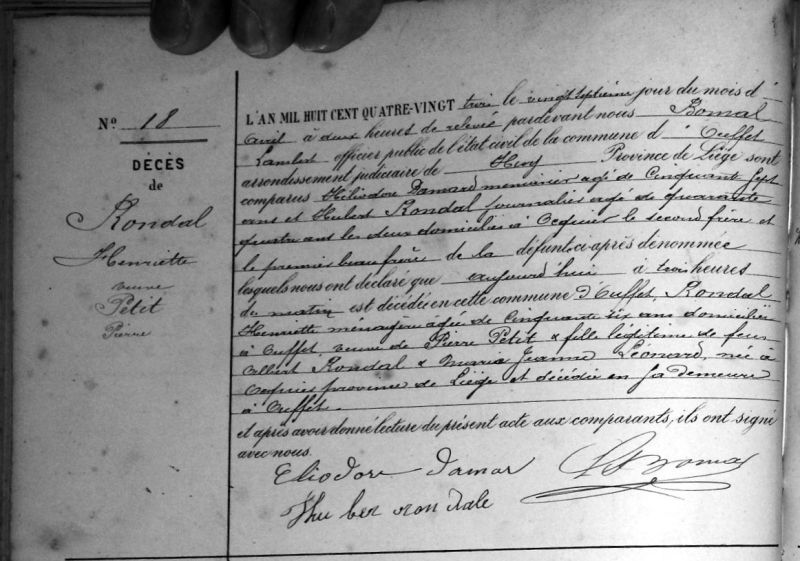 N° 18
DÉCÈS
de
Rondal
Henriette
veuve
Petit
Pierre
L'AN MIL HUIT CENT QUATRE-VINGT trois le vingt septième jour du mois d'
avril à deux heures de relevée pardevant nous Bomal
Lambert officier public de l'état civil de la commune d'Ouffet
arrondissement judiciaire de Huy Province de Liège sont
comparus Héliodore Damard meunier agé de Cinquante Sept
ans et Hubert Rondal Journalier agé de quarante
quatre ans les deux domiciliés à Ocquier le second frère et
le premier beau frère de la défunt ci-après dénommée
lesquels nous ont déclaré que aujourd'hui à trois heures
du matin est décédé en cette commune D'Ouffet, Rondal
Henriette ménagère agée de Cinquante six ans domiciliée
à Ouffet, veuve de Pierre Petit & fille légitime de feus
Albert Rondal & Maria Jeanne Léonard, née à
Ocquier province de Liège et décédée en sa demeure
à Ouffet.
et après avoir donné lecture du présent acte aux comparants, ils ont signé
avec nous.
Eliodore Damar
Hu ber ron dale